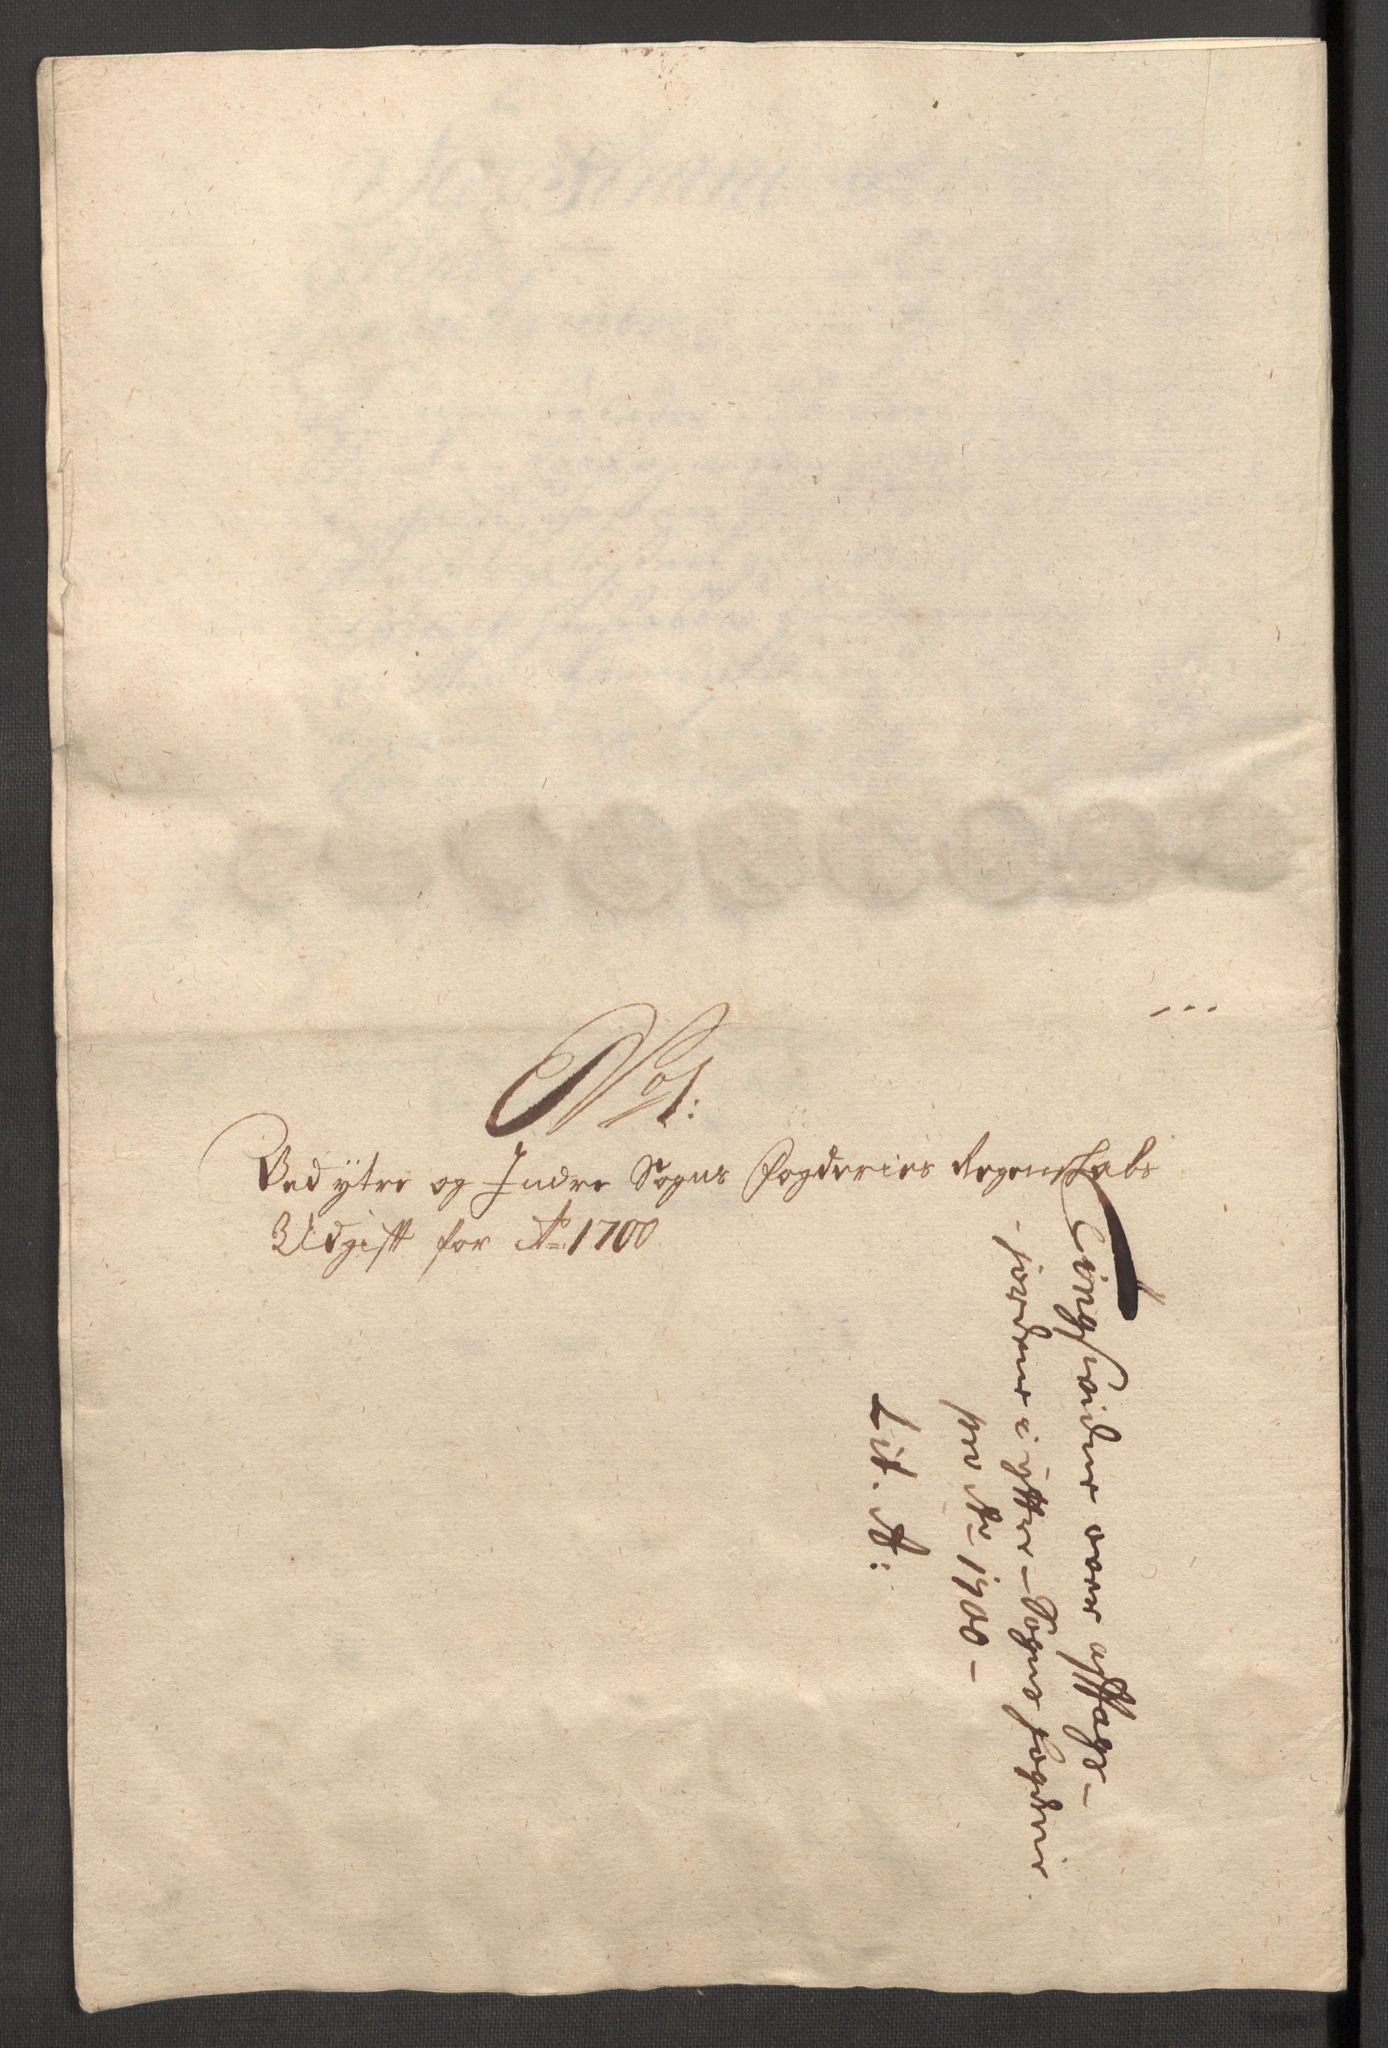 No 1:
Ved ytre og Indre Sogns fogderies Regenskabs
Udgift for Ao 1700
Tingsvidne over afftage-
- jordene i Ÿttre - Sogns fogderi
pro Ao 1700 -
Lit. A: